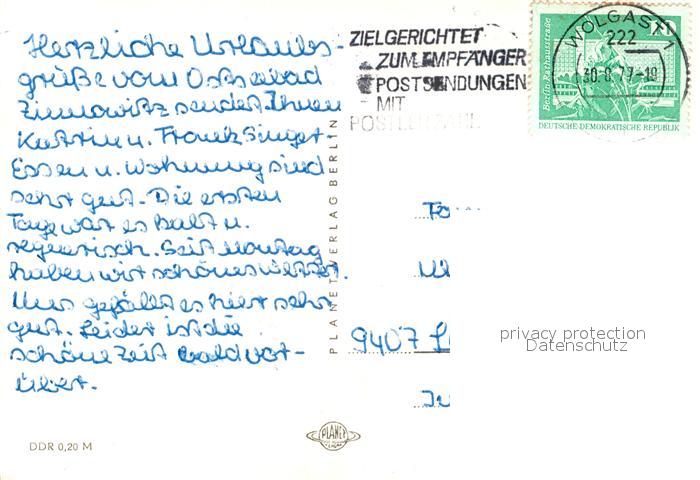 Herzliche Urlaubs-
grüße vom Ostseebad
Zinnowitz sendet Ihnen
Kattrin u. Frank Singet-
Essen u. Wohnung sind
sehr gut. Die ersten
Tage war es kalt u.
regnerisch. Seit Montag
haben wir schönes Wetter.
Uns gefällt es hier sehr
gut. Leider ist die
schöne Zeit bald vor-
über.
DDR 0,20 M
PLANET-VERLAG BERLIN
PLANET
ZIELGERICHTET
ZUM EMPFÄNGER
POSTSENDUNGEN
MIT
POSTLEITZAHL
WOLGAST 1
222
30.8.77-19
Berlin, Rathausstraße
DEUTSCHE DEMOKRATISCHE REPUBLIK
9407
privacy protection
Datenschutz